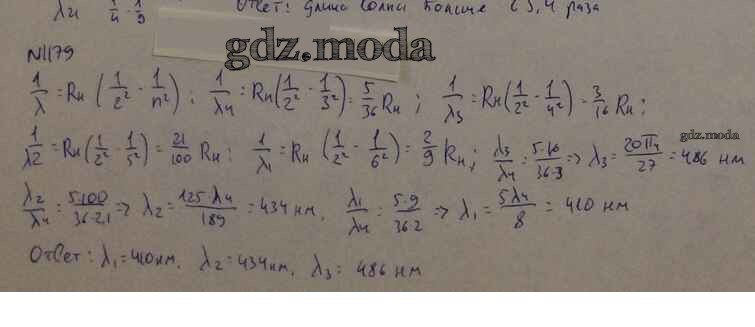 λ4 1/4 - 1/9 Ответ: длина волны больше в 5,4 раза
gdz.moda
N1179
1/λ = Rн (1/2² - 1/n²); 1/λ4 = Rн(1/2² - 1/3²) = 5/36 Rн; 1/λ3 = Rн(1/2² - 1/4²) = 3/16 Rн;
gdz.moda
1/λ2 = Rн(1/2² - 1/5²) = 21/100 Rн; 1/λ1 = Rн (1/2² - 1/6²) = 2/9 Rн; λ3/λ4 = 5·16/36·3 => λ3 = 20λ4/27 = 486 нм
λ2/λ4 = 5·100/36·21 => λ2 = 125·λ4/189 = 434 нм, λ1/λ4 = 5·9/36·2 => λ1 = 5λ4/8 = 410 нм
Ответ: λ1 = 410нм, λ2 = 434нм, λ3 = 486 нм